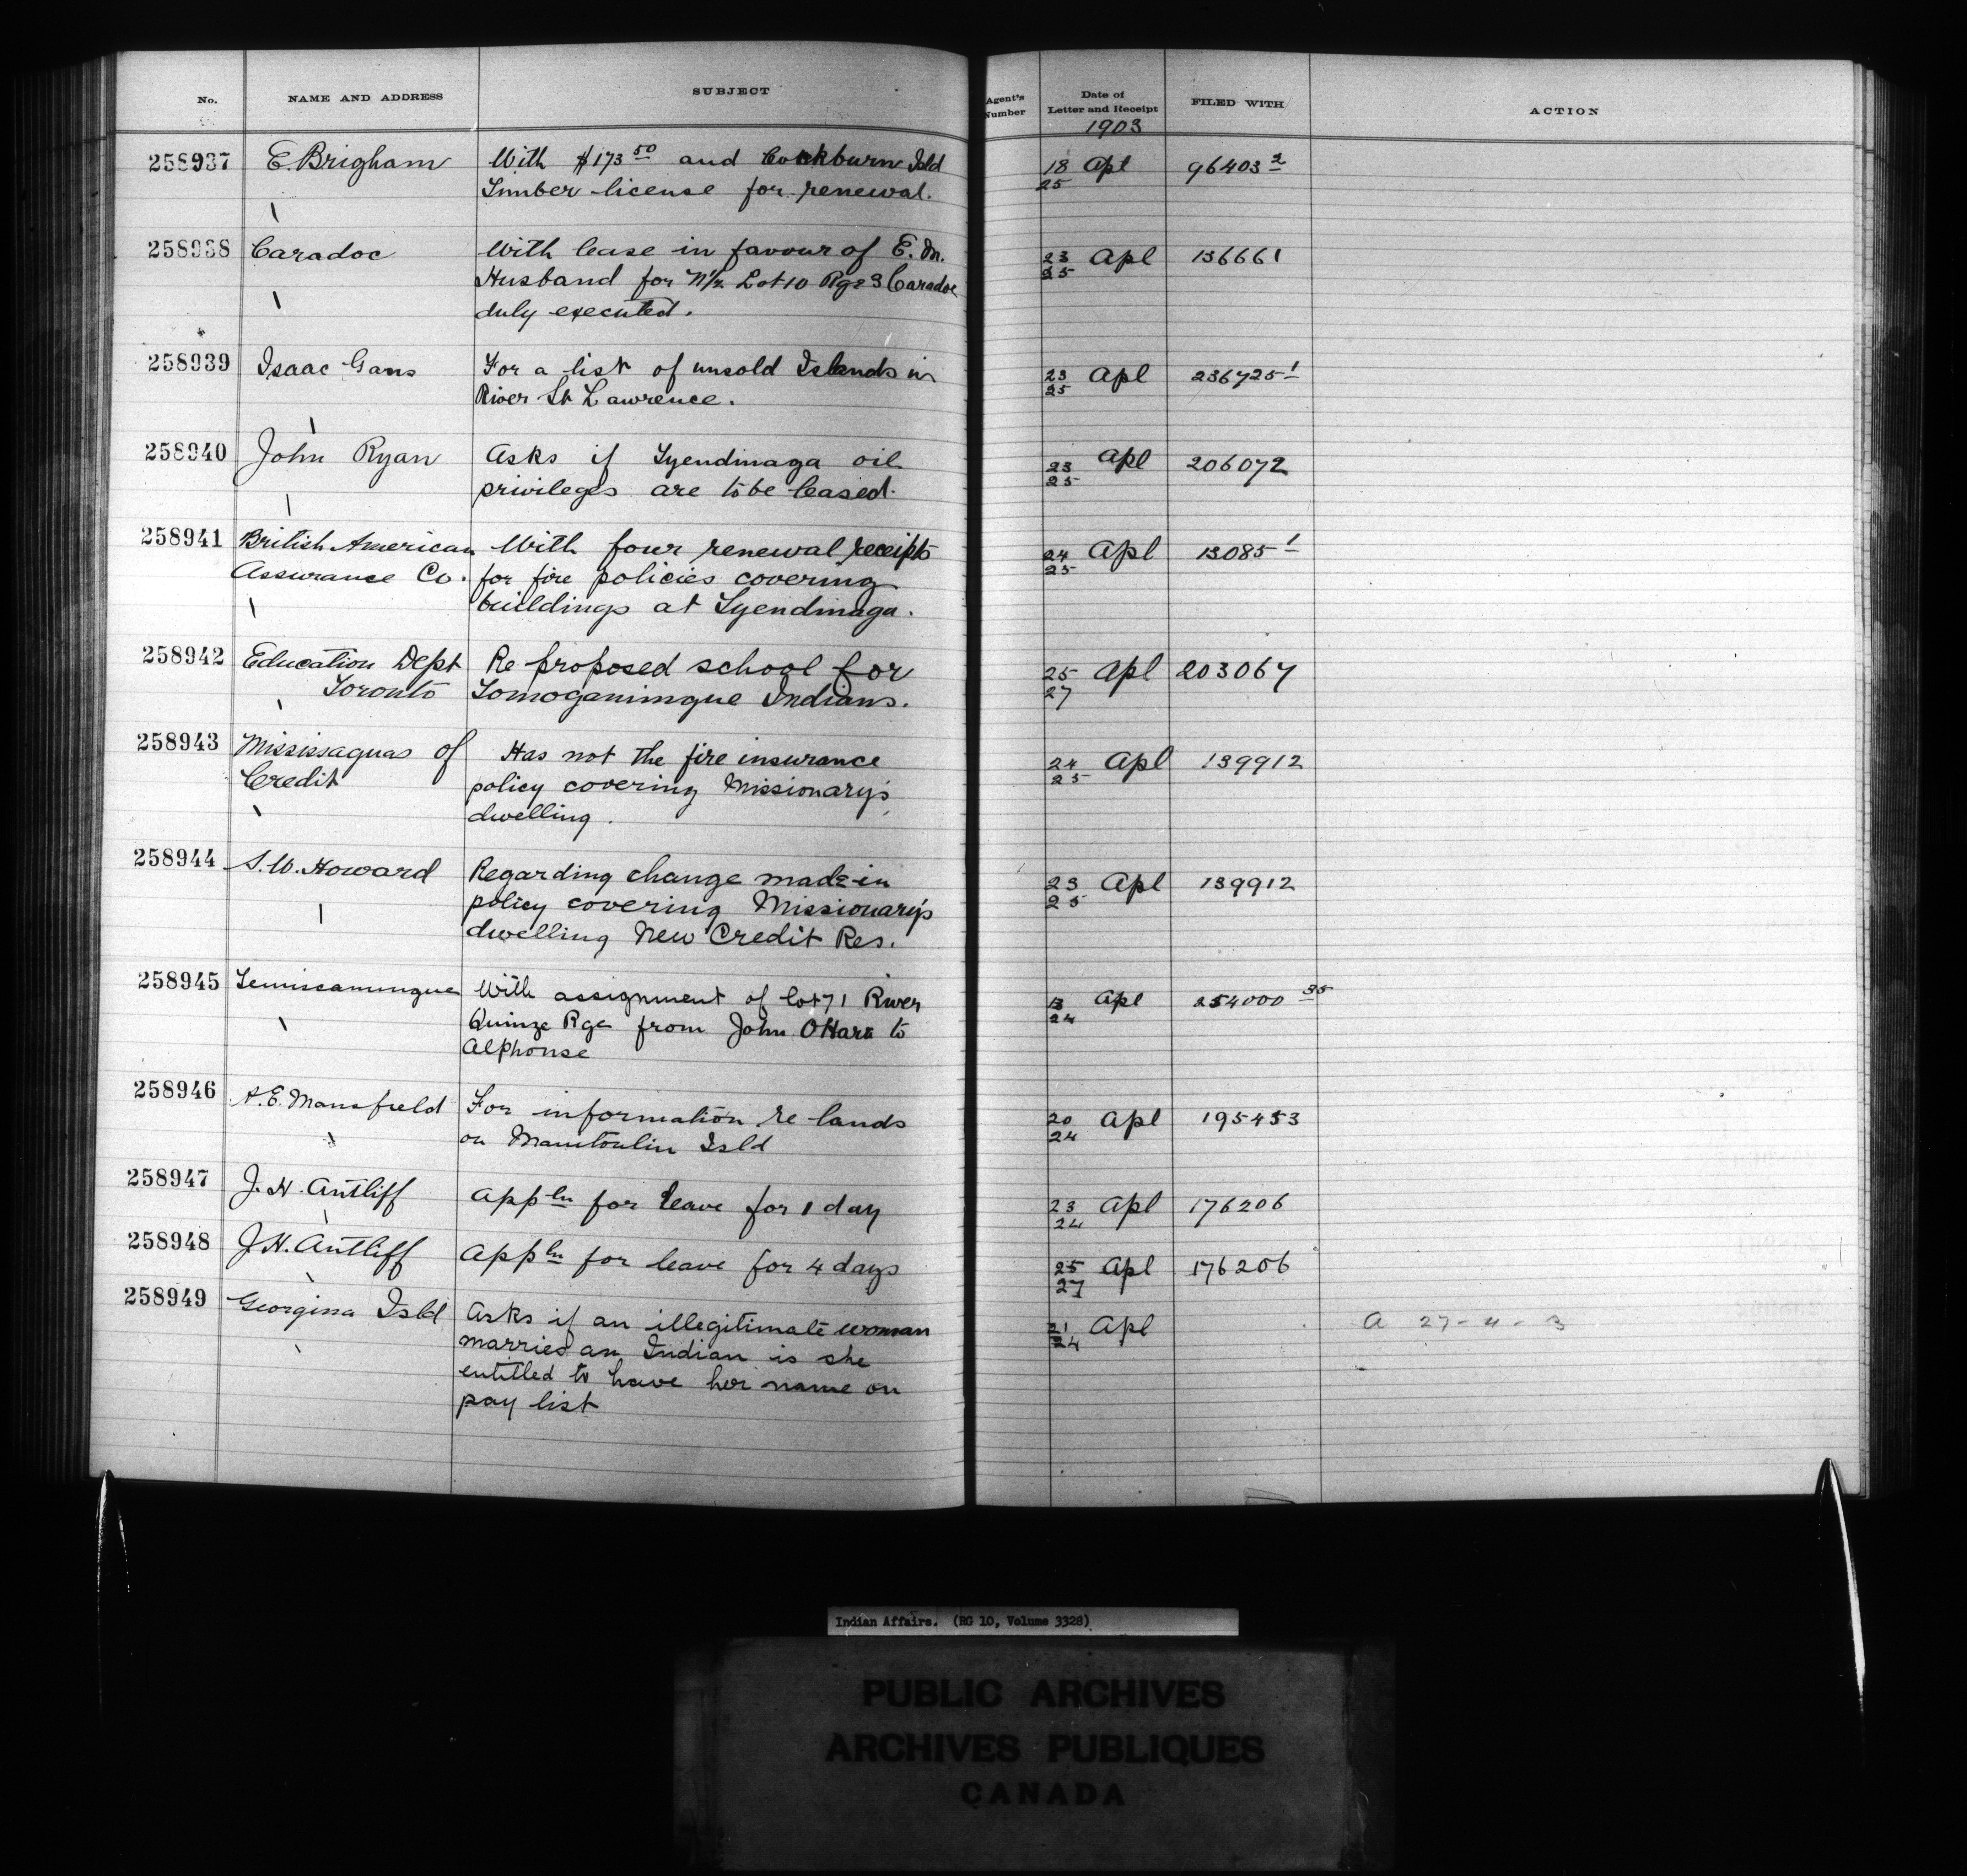 No. NAME AND ADDRESS SUBJECT Agent's Number Date of Letter and Receipt FILED WITH ACTION
1903
258937 E. Brigham With $173 50 and Cockburn Isld 18 Apl 96403 2
Timber license for renewal. 25
258938 Caradoc With lease in favour of E. M. 23 Apl 136661
Husband for N½ Lot 10 Rge 3 Caradoc 25
duly executed.
258939 Isaac Gans For a list of unsold Islands in 23 Apl 236725 1
River St Lawrence. 25
258940 John Ryan Asks if Tyendinaga oil 23 Apl 206072
privileges are to be leased. 25
258941 British American With four renewal receipts 24 Apl 13085 1
Assurance Co. for fire policies covering 25
buildings at Tyendinaga.
258942 Education Dept Re proposed school for 25 Apl 203067
Toronto Tomogamingue Indians. 27
258943 Mississaguas of Has not the fire insurance 24 Apl 139912
Credit policy covering Missionary's 25
dwelling.
258944 S. W. Howard Regarding change made in 23 Apl 139912
policy covering Missionary's 25
dwelling New Credit Res.
258945 Temiscamingue With assignment of lot 71 River 13 Apl 254000 35
Quinze Rge from John OHara to 24
Alphonse
258946 A. E. Mansfield For information re lands 20 Apl 195453
on Manitoulin Isld 24
258947 J. H. Antliff Appln for leave for 1 day 23 Apl 176206
24
258948 J. H. Antliff Appln for leave for 4 days 25 Apl 176206
27
258949 Georgina Isld Asks if an illegitimate woman 21 Apl A 27-4-3
married an Indian is she 24
entitled to have her name on
pay list
Indian Affairs. (RG 10, Volume 3328)
PUBLIC ARCHIVES
ARCHIVES PUBLIQUES
CANADA